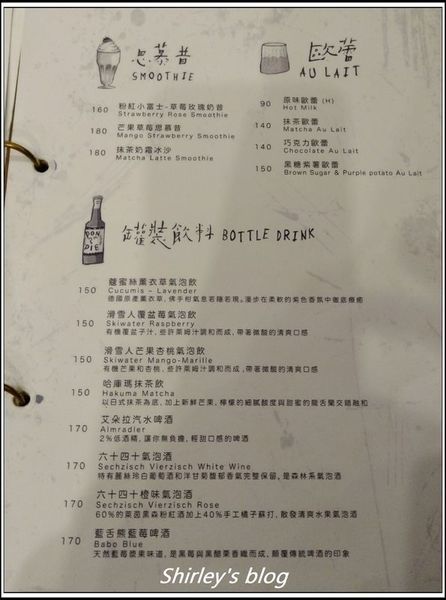 思慕昔
SMOOTHIE
160 粉紅小富士-草莓玫瑰奶昔
Strawberry Rose Smoothie
180 芒果草莓思慕昔
Mango Strawberry Smoothie
180 抹茶奶霜冰沙
Matcha Latte Smoothie
歐蕾
AU LAIT
90 原味歐蕾 (H)
Hot Milk
140 抹茶歐蕾
Matcha Au Lait
140 巧克力歐蕾
Chocolate Au Lait
150 黑糖紫薯歐蕾
Brown Sugar & Purple potato Au Lait
DON'T DIE
罐裝飲料 BOTTLE DRINK
150 蔻蜜絲薰衣草氣泡飲
Cucumis - Lavender
德國原產薰衣草, 佛手柑氣息若隱若現。漫步在柔軟的紫色香氛中徹底療癒
150 滑雪人覆盆莓氣泡飲
Skiwater Raspberry
有機覆盆子汁, 些許萊姆汁調和而成, 帶著微酸的清爽口感
150 滑雪人芒果杏桃氣泡飲
Skiwater Mango-Marille
有機芒果和杏桃, 些許萊姆汁調和而成, 帶著微酸的清爽口感
150 哈庫瑪抹茶飲
Hakuma Matcha
以日式抹茶為底, 加上新鮮芒果, 檸檬的細膩酸度與甜蜜的龍舌蘭交錯融和
170 艾朵拉汽水啤酒
Almradler
2%低酒精, 讓你無負擔, 輕甜口感的啤酒
170 六十四十氣泡酒
Sechzisch Vierzisch White Wine
特有麗絲玲白葡萄酒和洋甘菊馥郁香氣完整保留, 是森林系氣泡酒
170 六十四十橙味氣泡酒
Sechzisch Vierzisch Rose
60%的萊茵黑森粉紅酒加上40%手工橘子蘇打, 散發清爽水果氣泡酒
170 藍舌熊藍莓啤酒
Babo Blue
天然藍莓漿果味道, 是黑莓與黑醋栗香織而成, 顛覆傳統啤酒的印象
Shirley's blog